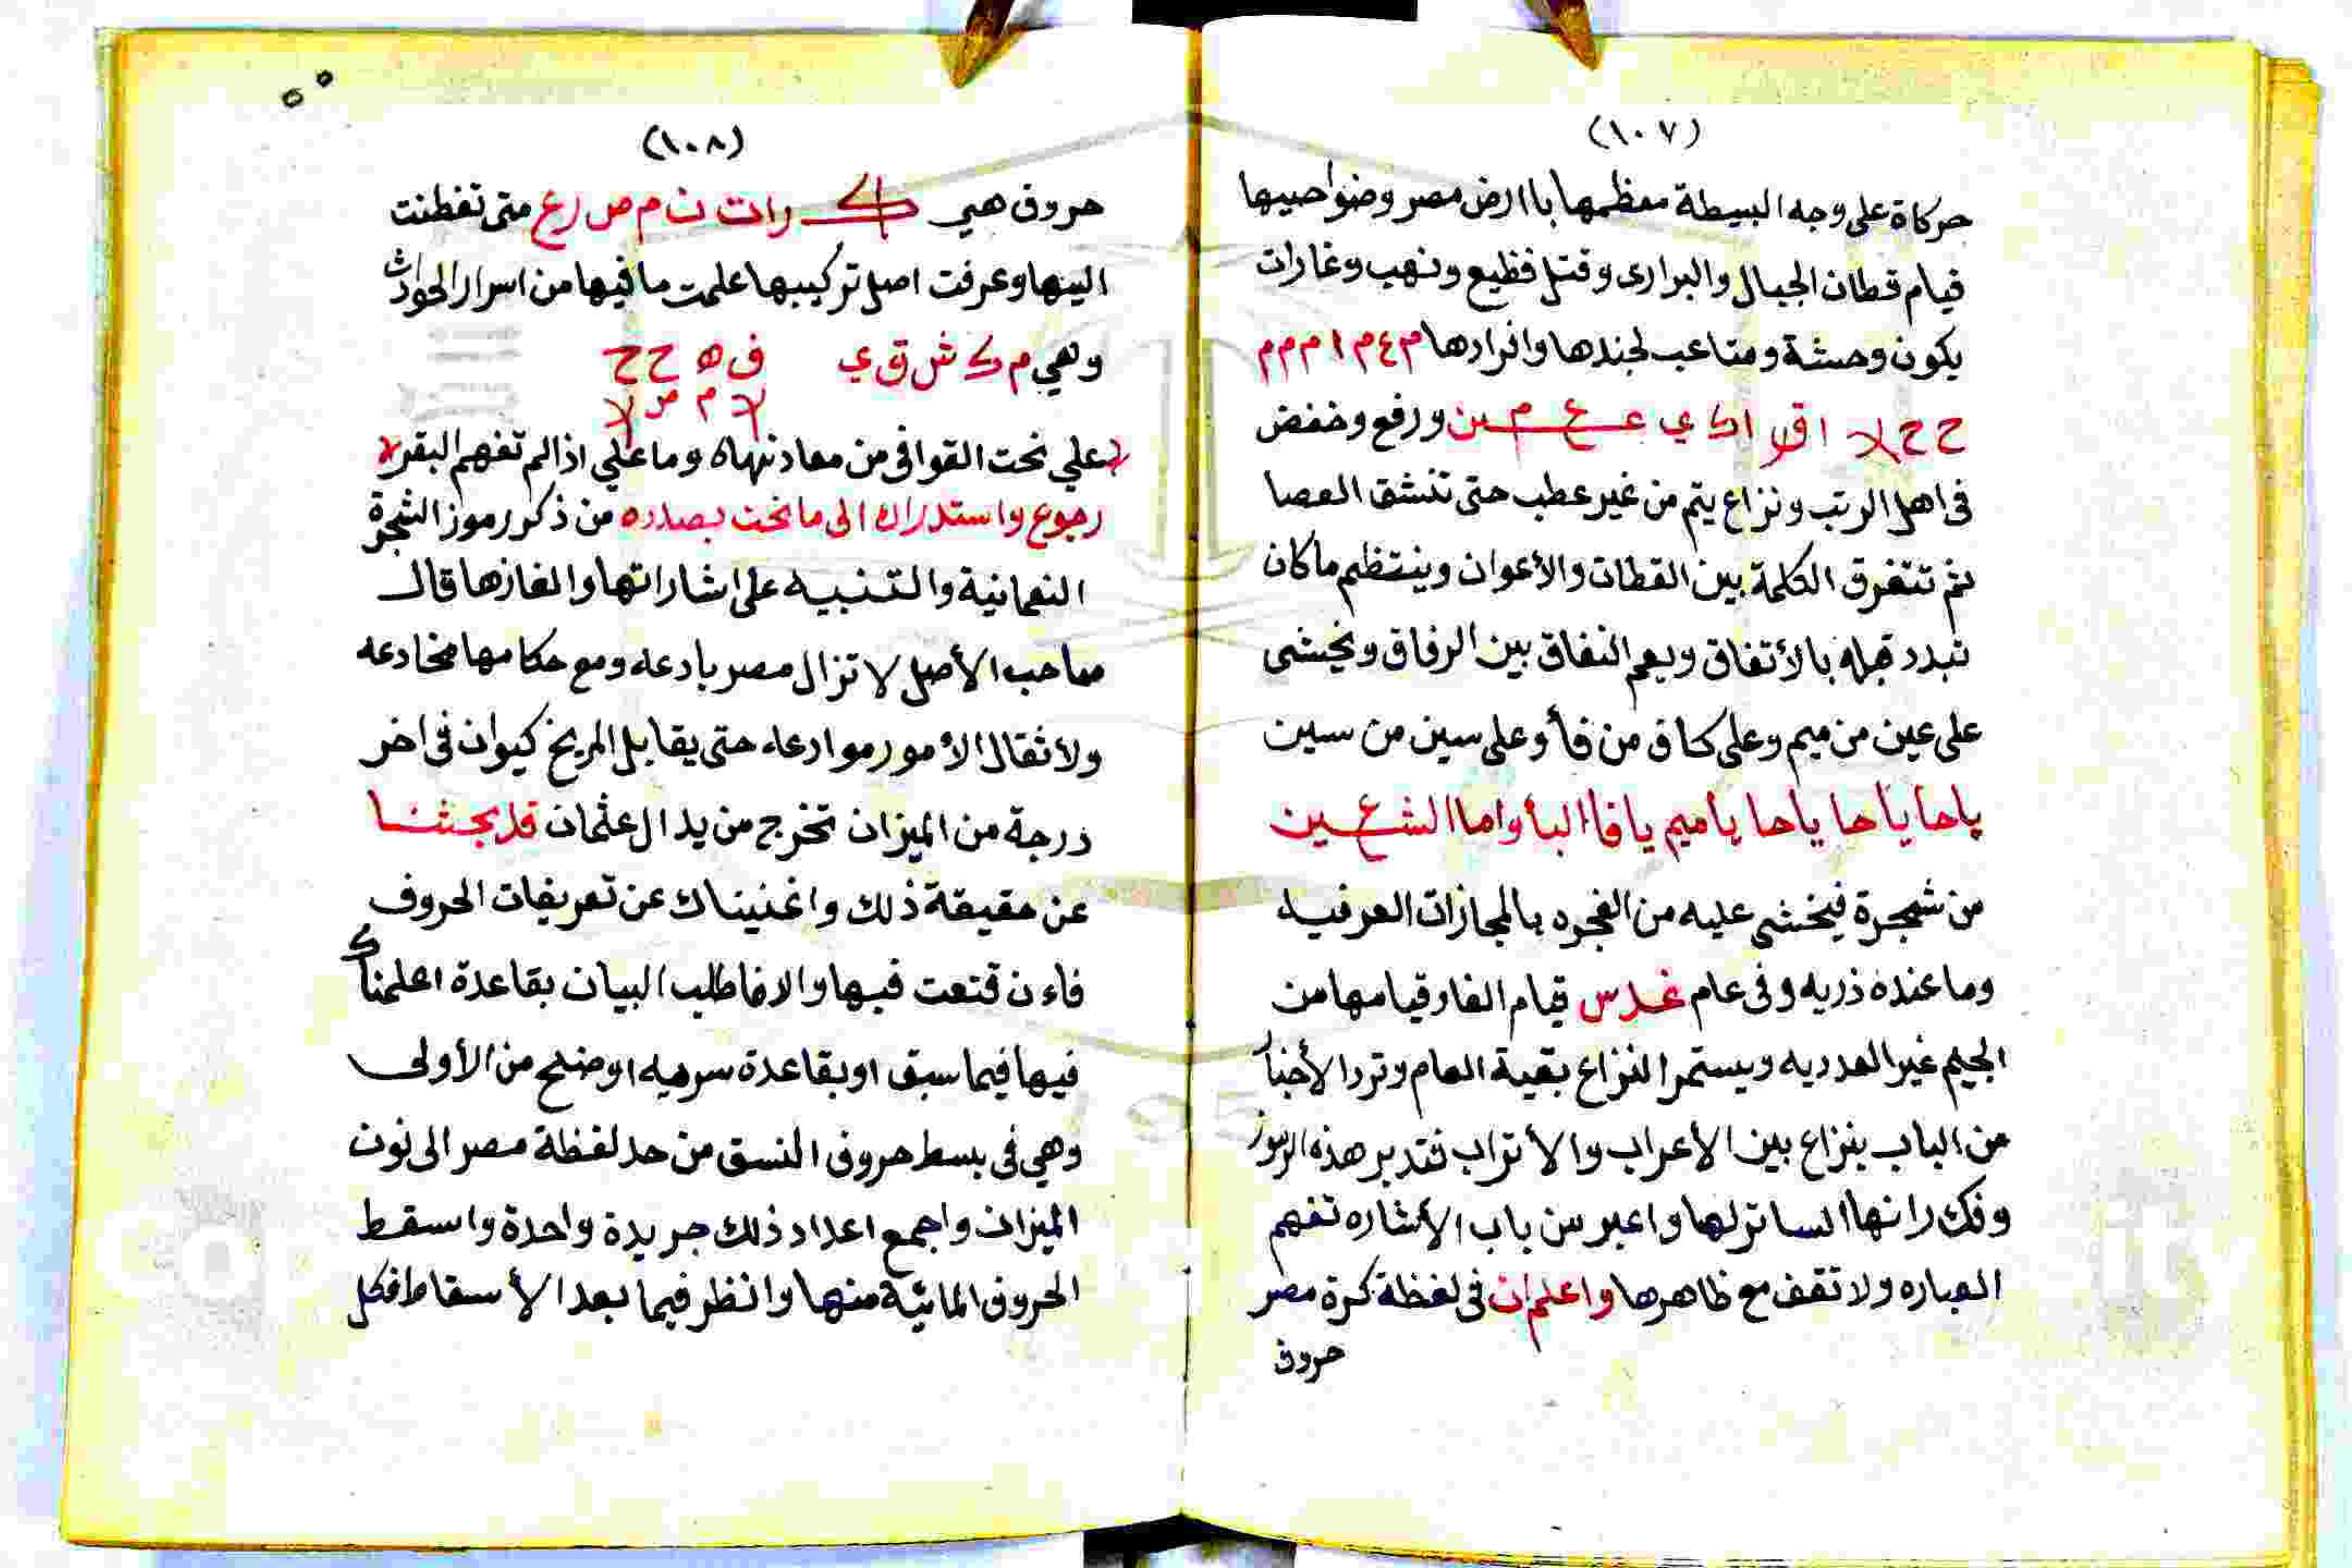 (١٠٧)
حركاة على وجه البسيطة معظمها باارض مصر وضواحيها
قيام قطان الجبال والبرارى وقتل فظيع ونهب وغارات
يكون وحشة ومتاعب لجندها وافرادها م ٤ م ١ م م م
ح ح لا ا ق ا ك ي ع م ورفع وخفض
فى اهل الرتب ونزاع يتم من غير عطب حتى تنشق العصا
ثم تتفرق الكلمة بين القطان والأعوان وينتظم ماكان
تبدد قبله بالأتفاق ويعم النفاق بين الرفاق ويخشى
على عين من ميم وعلى كاف من فأ وعلى سين من سين
ياحا ياحا ياحا ياميم يافا البأ واما الشعين
من شجرة فيخشى عليه من الفجره بالمجازات العرفيه
وما عنده ذريه وفى عام غدس قيام الفار قيامها من
الجيم غير العدديه ويستمر النزاع بقية العام وترد الأخبار
من الباب بنزاع بين الأعراب والأتراب فتدبر هذه الرموز
وفك رانها الساتر لها واعبر من باب الأشاره تفهم
العباره ولا تقف مع ظاهرها واعلم ان فى لفظة كرة مصر
حروف
(١٠٨)
حروف هي ك ر ا ت ن م ص ر ع متى تفطنت
اليها وعرفت اصل تركيبها علمت ما فيها من اسرار الحوادث
وهي م ك ش ق ي ف ه ح ح
لا م ص لا
علي نحت القوافى من معادنها ه وما علي اذا لم تفهم البقر
رجوع واستدراك الى ما نحن بصدده من ذكر رموز الشجرة
النعمانية والتنبيه على اشاراتها والغازها قال
صاحب الأصل لا تزال مصر بادعه ومع حكامها مخادعه
ولأثقال الأمور موادعه حتى يقابل المريخ كيوان فى اخر
درجة من الميزان تخرج من يد ال عثمان قد بحثنا
عن حقيقة ذلك واغنيناك عن تعريفات الحروف
فاءن قنعت فيها والا فاطلب البيان بقاعدة اعلمناك
فيها فيما سبق او بقاعدة سرميه اوضح من الأولى
وهي فى بسط حروف النسق من حد لفظة مصر الى نون
الميزان واجمع اعداد ذلك جريدة واحدة واسقط
الحروف المائية منها وانظر فيما بعد الأسقاط فكل